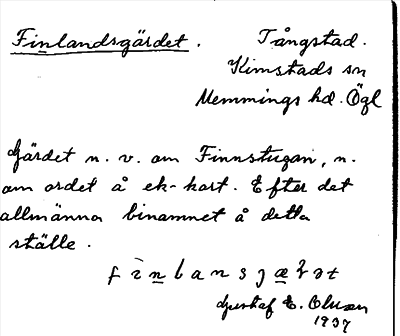 Finlandsgärdet. Tångstad.
Kimstads sn
Memmings hd. Ögl
Gärdet n. v. om Finnstugan, n.
om ordet å ek-kart. Efter det
allmänna binamnet å detta
ställe.
Gustaf E. Olsson
1937